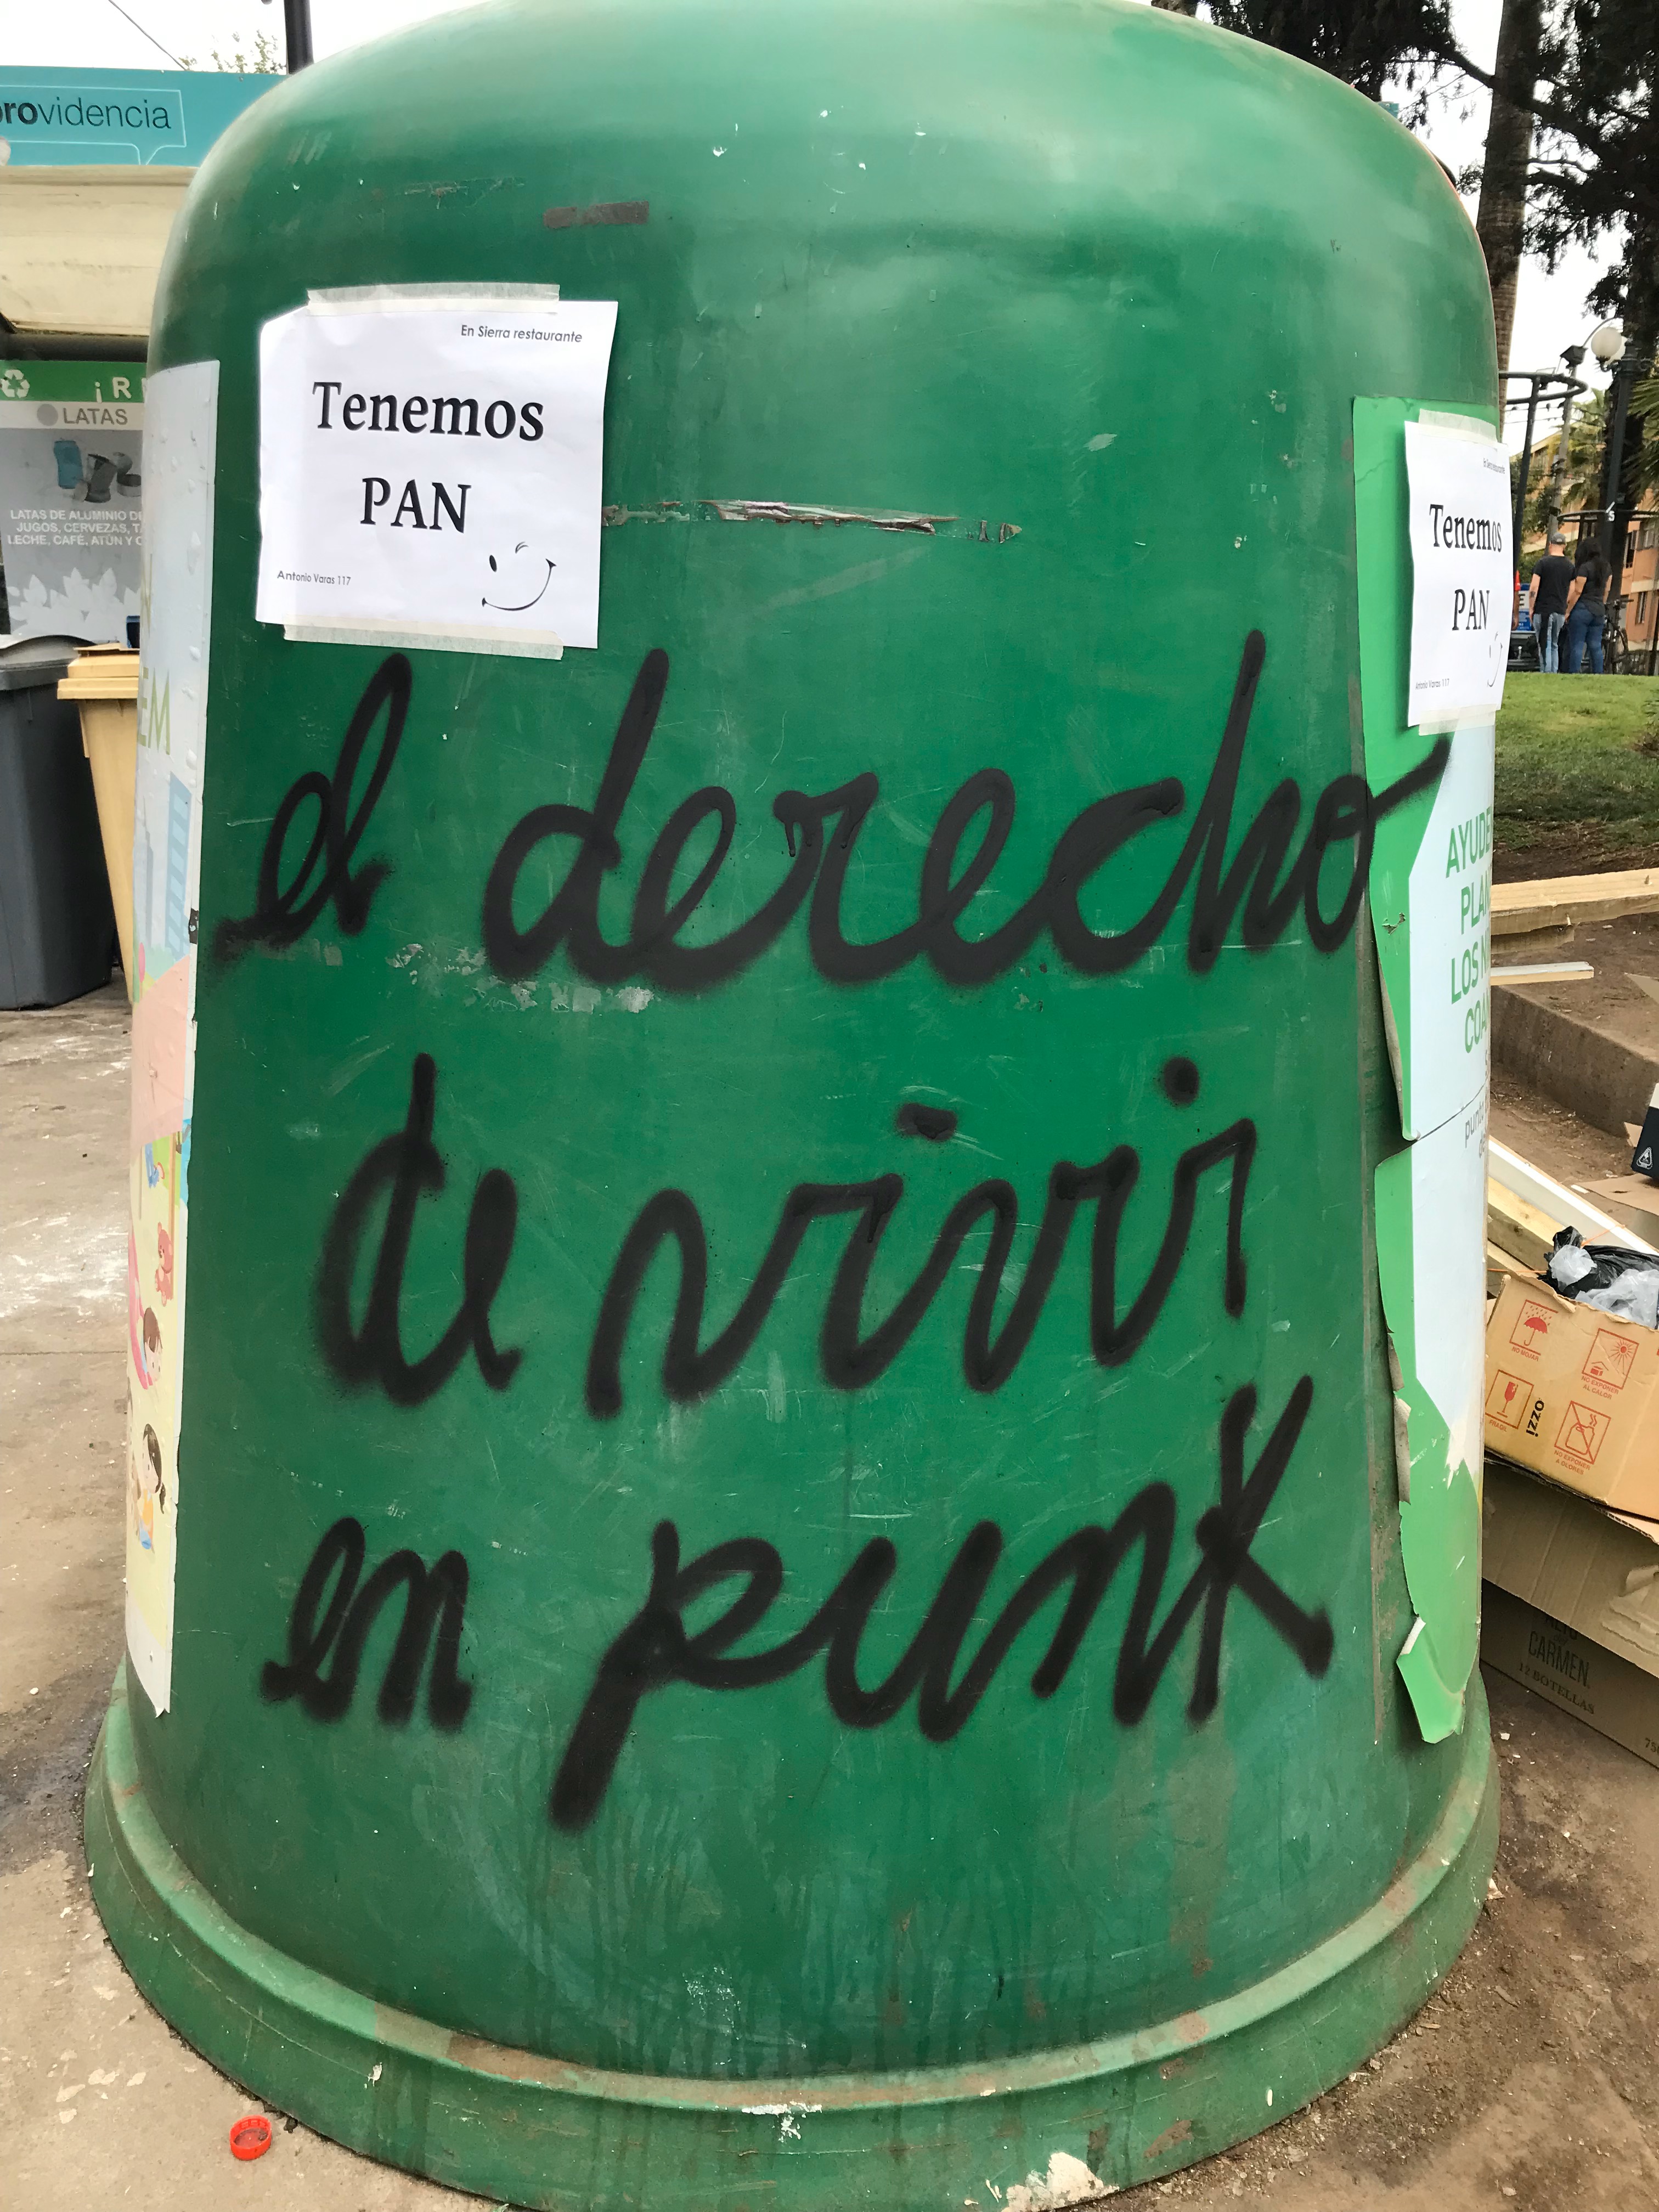 providencia
LATAS
LATAS DE ALUMINIO DE
JUGOS, CERVEZAS,
LECHE, CAFÉ, ATÚN Y
En Sierra restaurante
Tenemos
PAN
Antonio Varas 117
Tenemos
PAN
Antonio Varas 117
el derecho
de vivir
en punk
LOS
NO MOJAR
NO EXPONER
AL CALOR
FRAGIL
izzo
NO EXPONER
A OLORES
CARMEN
12 BOTELLAS